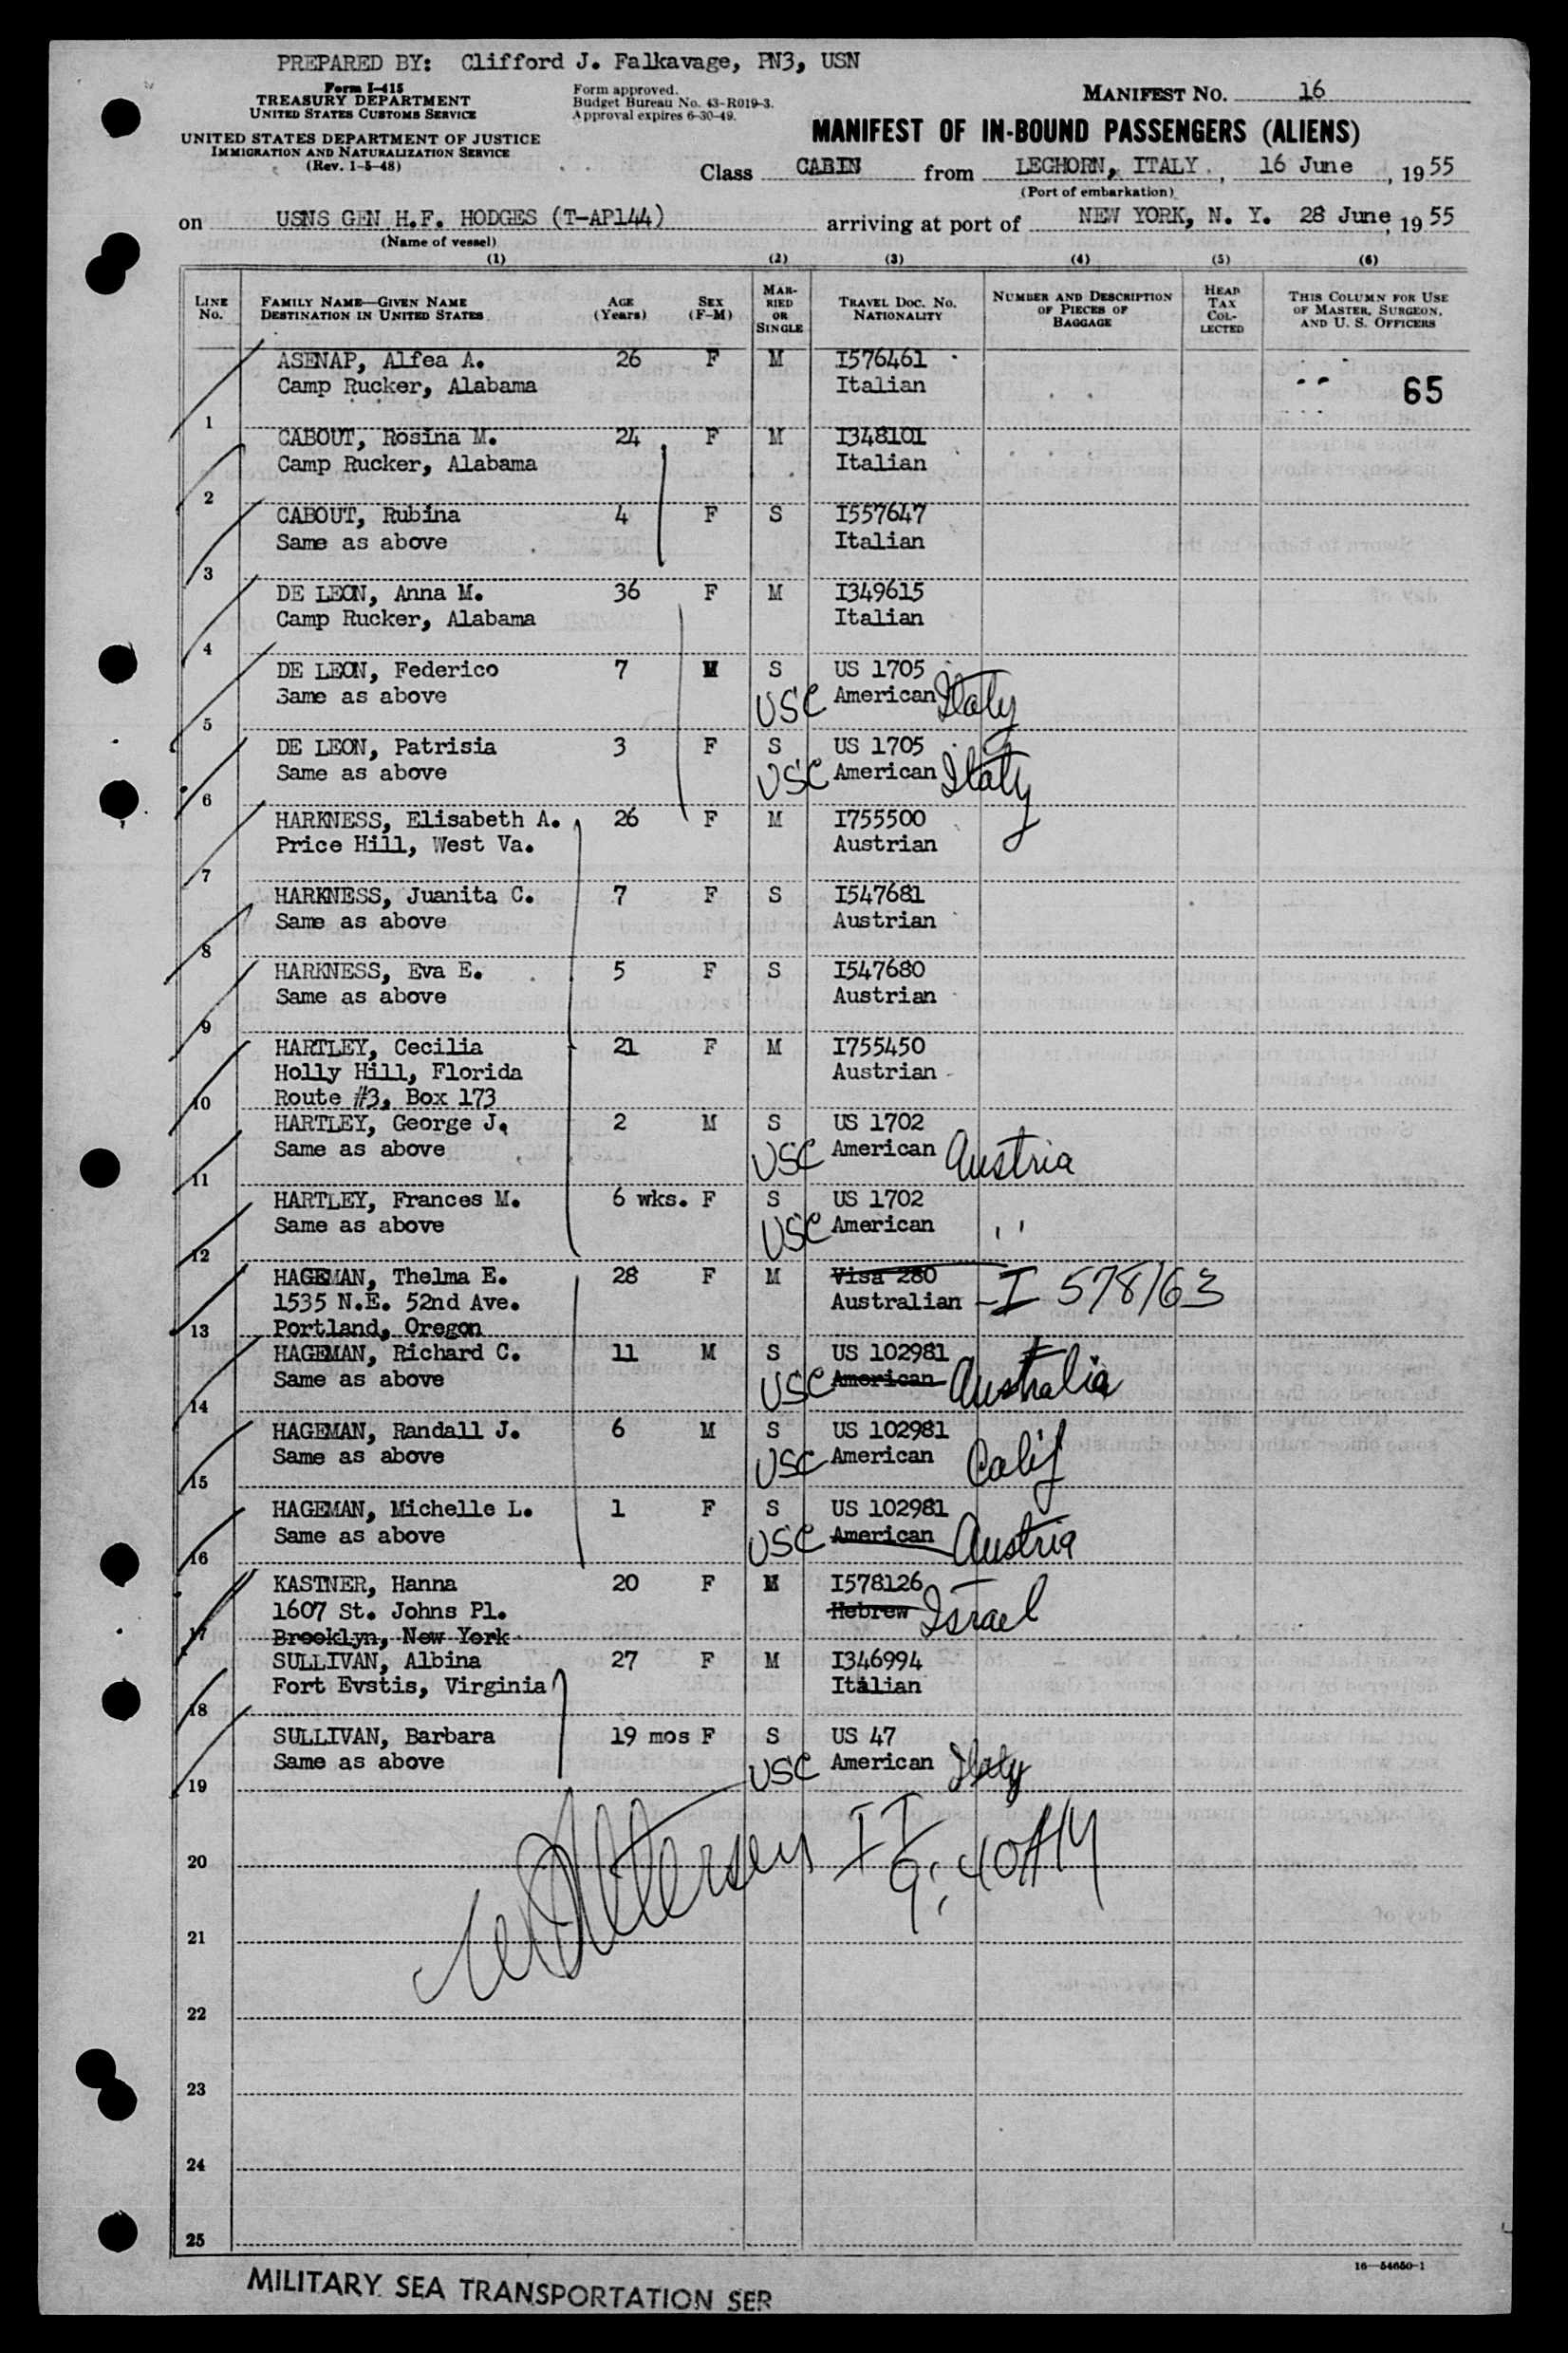 PREPARED BY: Clifford J. Falkavage, PN3, USN
Form I-415
TREASURY DEPARTMENT
UNITED STATES CUSTOMS SERVICE
UNITED STATES DEPARTMENT OF JUSTICE
IMMIGRATION AND NATURALIZATION SERVICE
(Rev. 1-5-48)
Form approved.
Budget Bureau No. 43-R019-3.
Approval expires 6-30-49.
MANIFEST NO. 16
MANIFEST OF IN-BOUND PASSENGERS (ALIENS)
Class CABIN from LEGHORN, ITALY, 16 June, 1955
(Port of embarkation)
on USNS GEN H.F. HODGES (T-AP144) arriving at port of NEW YORK, N. Y. 28 June, 1955
(Name of vessel)
(1) (2) (3) (4) (5) (6)
LINE No. FAMILY NAME—GIVEN NAME DESTINATION IN UNITED STATES AGE (Years) SEX (F-M) MARRIED OR SINGLE TRAVEL DOC. NO. NATIONALITY NUMBER AND DESCRIPTION OF PIECES OF BAGGAGE HEAD TAX COLLECTED THIS COLUMN FOR USE OF MASTER, SURGEON, AND U. S. OFFICERS
ASENAP, Alfea A. 26 F M I576461
Camp Rucker, Alabama Italian 65
1
CABOUT, Rosina M. 24 F M I348101
Camp Rucker, Alabama Italian
2
CABOUT, Rubina 4 F S I557647
Same as above Italian
3
DE LEON, Anna M. 36 F M I349615
Camp Rucker, Alabama Italian
4
DE LEON, Federico 7 M S US 1705
Same as above USC American Italy
5
DE LEON, Patrisia 3 F S US 1705
Same as above USC American Italy
6
HARKNESS, Elisabeth A. 26 F M I755500
Price Hill, West Va. Austrian
7
HARKNESS, Juanita C. 7 F S I547681
Same as above Austrian
8
HARKNESS, Eva E. 5 F S I547680
Same as above Austrian
9
HARTLEY, Cecilia 21 F M I755450
Holly Hill, Florida Austrian
10 Route #3, Box 173
HARTLEY, George J. 2 M S US 1702
Same as above USC American Austria
11
HARTLEY, Frances M. 6 wks. F S US 1702
Same as above USC American ''
12
HAGEMAN, Thelma E. 28 F M Visa 280
1535 N.E. 52nd Ave. Australian - I 578163
13 Portland, Oregon
HAGEMAN, Richard C. 11 M S US 102981
Same as above USC American Australia
14
HAGEMAN, Randall J. 6 M S US 102981
Same as above USC American Calif
15
HAGEMAN, Michelle L. 1 F S US 102981
Same as above USC American Austria
16
KASTNER, Hanna 20 F M I578126
1607 St. Johns Pl. Hebrew Israel
17 Brooklyn, New York
SULLIVAN, Albina 27 F M I346994
Fort Evstis, Virginia Italian
18
SULLIVAN, Barbara 19 mos F S US 47
Same as above USC American Italy
19
II
9:40AM
20
21
22
23
24
25
16—54650-1
MILITARY SEA TRANSPORTATION SER